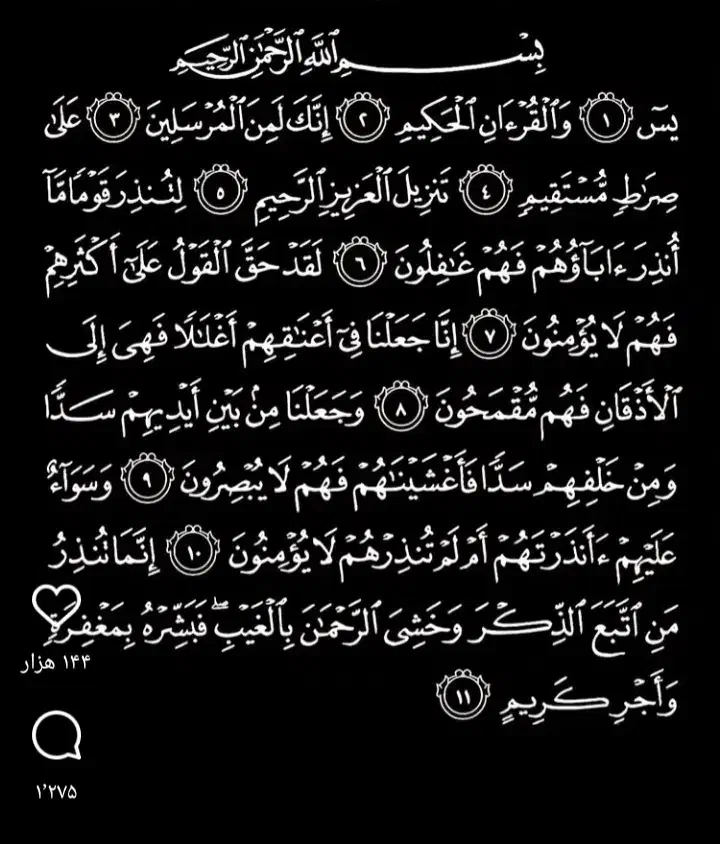 بِسْمِ ٱللَّهِ ٱلرَّحْمَٰنِ ٱلرَّحِيمِ
يسٓ ١ وَٱلْقُرْءَانِ ٱلْحَكِيمِ ٢ إِنَّكَ لَمِنَ ٱلْمُرْسَلِينَ ٣ عَلَىٰ
صِرَٰطٍ مُّسْتَقِيمٍ ٤ تَنزِيلَ ٱلْعَزِيزِ ٱلرَّحِيمِ ٥ لِتُنذِرَ قَوْمًا مَّآ
أُنذِرَ ءَابَآؤُهُمْ فَهُمْ غَٰفِلُونَ ٦ لَقَدْ حَقَّ ٱلْقَوْلُ عَلَىٰٓ أَكْثَرِهِمْ
فَهُمْ لَا يُؤْمِنُونَ ٧ إِنَّا جَعَلْنَا فِىٓ أَعْنَٰقِهِمْ أَغْلَٰلًا فَهِىَ إِلَى
ٱلْأَذْقَانِ فَهُم مُّقْمَحُونَ ٨ وَجَعَلْنَا مِنۢ بَيْنِ أَيْدِيهِمْ سَدًّا
وَمِنْ خَلْفِهِمْ سَدًّا فَأَغْشَيْنَٰهُمْ فَهُمْ لَا يُبْصِرُونَ ٩ وَسَوَآءٌ
عَلَيْهِمْ ءَأَنذَرْتَهُمْ أَمْ لَمْ تُنذِرْهُمْ لَا يُؤْمِنُونَ ١٠ إِنَّمَا تُنذِرُ
مَنِ ٱتَّبَعَ ٱلذِّكْرَ وَخَشِىَ ٱلرَّحْمَٰنَ بِٱلْغَيْبِ ۖ فَبَشِّرْهُ بِمَغْفِرَةٍ
وَأَجْرٍ كَرِيمٍ ١١
۱۴۴ هزار
۱٬۲۷۵